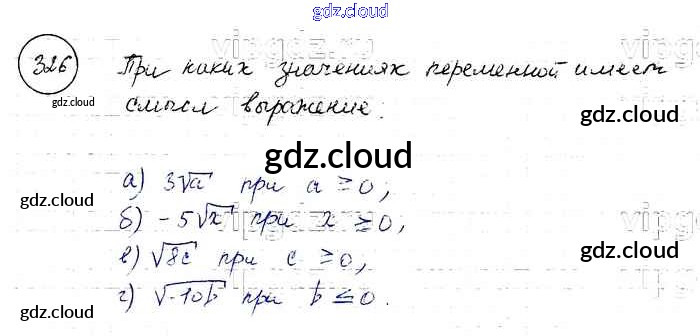 gdz.cloud
gdz.cloud
326 При каких значениях переменной имеет
vipgdz
gdz.cloud
смысл выражение:
gdz.cloud
gdz.cloud
а) 3√a при a ≥ 0,
б) -5√x при x ≥ 0,
gdz.cloud
gdz.cloud
в) √8c при c ≥ 0,
г) √-10b при b ≤ 0.
gdz.cloud
gdz.cloud